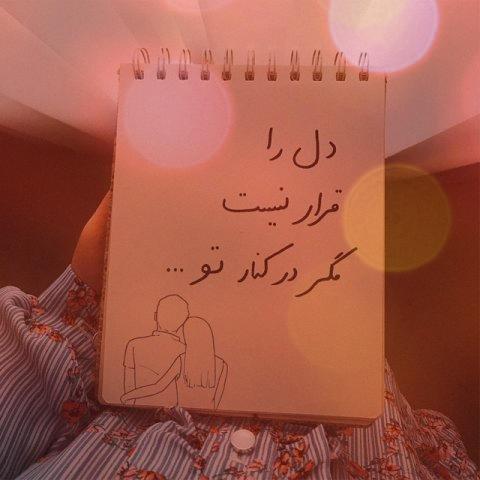 دل را
قرار نیست
مگر در کنار تو ...